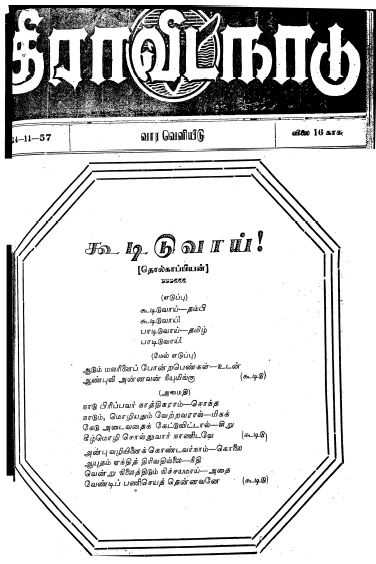 திராவிடநாடு
24-11-57 வார வெளியீடு விலை 16 காசு
கூடிடுவாய்!
[தொல்காப்பியன்]
(எடுப்பு)
கூடிடுவாய்—தம்பி
கூடிடுவாய்!
பாடிடுவாய்—தமிழ்
பாடிடுவாய்!
(மேல் எடுப்பு)
ஆடும் மலரினைப் போன்றபெண்கள்—உடன்
ஆண்புலி அன்னவன் நீயுமிங்கு (கூடிடு)
(அமைதி)
நாடு பிரிப்பவர் காத்திகராம்—சொந்த
நாடும், மொழியுதும் வேற்றவரால்—மிகக்
கேடு அடைவதைக் கேட்டுவிட்டால்—சிறு
கீழ்மொழி சொல்லுவார் காணிடவே (கூடிடு)
அன்பு வழியினைக் கொண்டவர்நாம்—கொலை
ஆயுதம் ஏந்தித் திரிவதில்லை—நீதி
வென்று நிலைத்திடும் நிச்சயமாய்—அதை
வேண்டிப் பணிசெயத் தென்னவனே (கூடிடு)